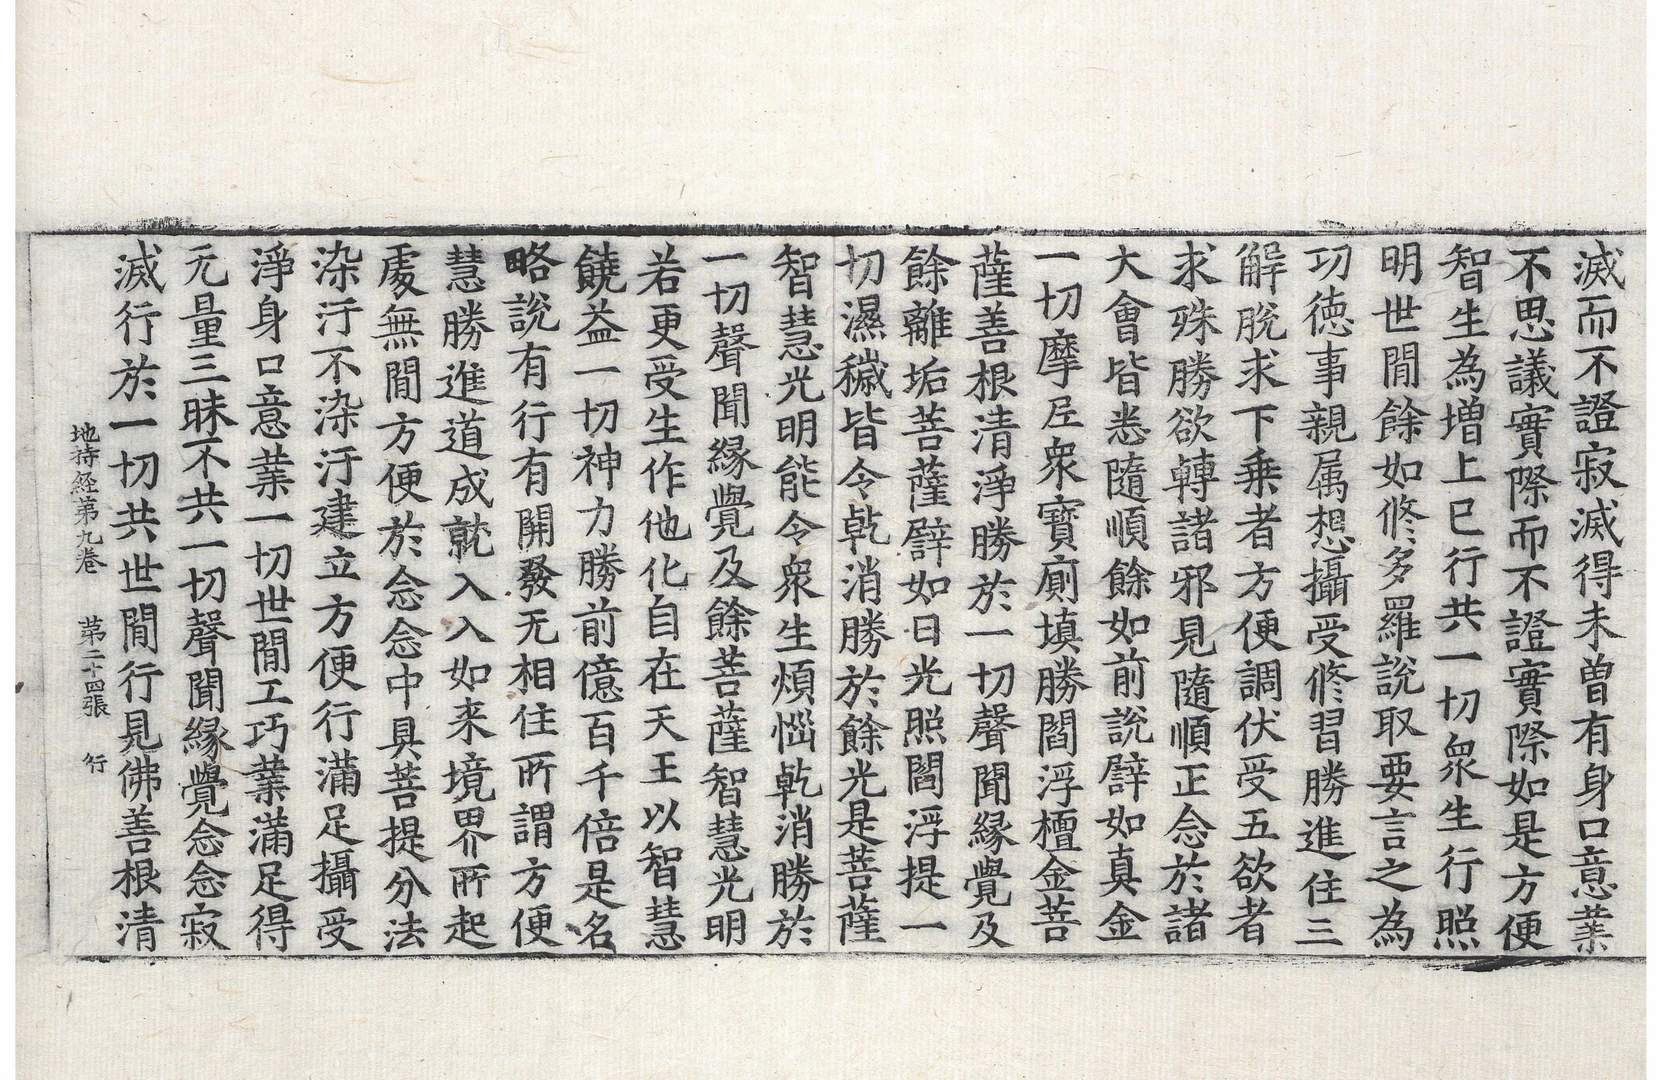 滅而不證寂滅得未曽有身口意業
不思議實際而不證實際如是方便
智生為增上已行共一切衆生行照
明世閒餘如修多羅說取要言之為
功徳事親属想攝受修習勝進住三
解脫求下乗者方便調伏受五欲者
求殊勝欲轉諸邪見隨順正念於諸
大會皆悉隨順餘如前說譬如真金
一切摩尼衆寶廁填勝閻浮檀金菩
薩善根清淨勝於一切聲聞緣覺及
餘離垢菩薩譬如日光照閻浮提一
切濕穢皆令乹消勝於餘光是菩薩
智慧光明能令衆生煩惱乹消勝於
一切聲聞緣覺及餘菩薩智慧光明
若更受生作他化自在天王以智慧
饒益一切神力勝前億百千倍是名
略說有行有開發无相住所謂方便
慧勝進道成就入入如来境界所起
處無閒方便於念念中具菩提分法
染汙不染汙建立方便行滿足攝受
淨身口意業一切世閒工巧業滿足得
无量三昧不共一切聲聞緣覺念念寂
滅行於一切共世閒行見佛善根清
地持経第九卷　第二十四張　行